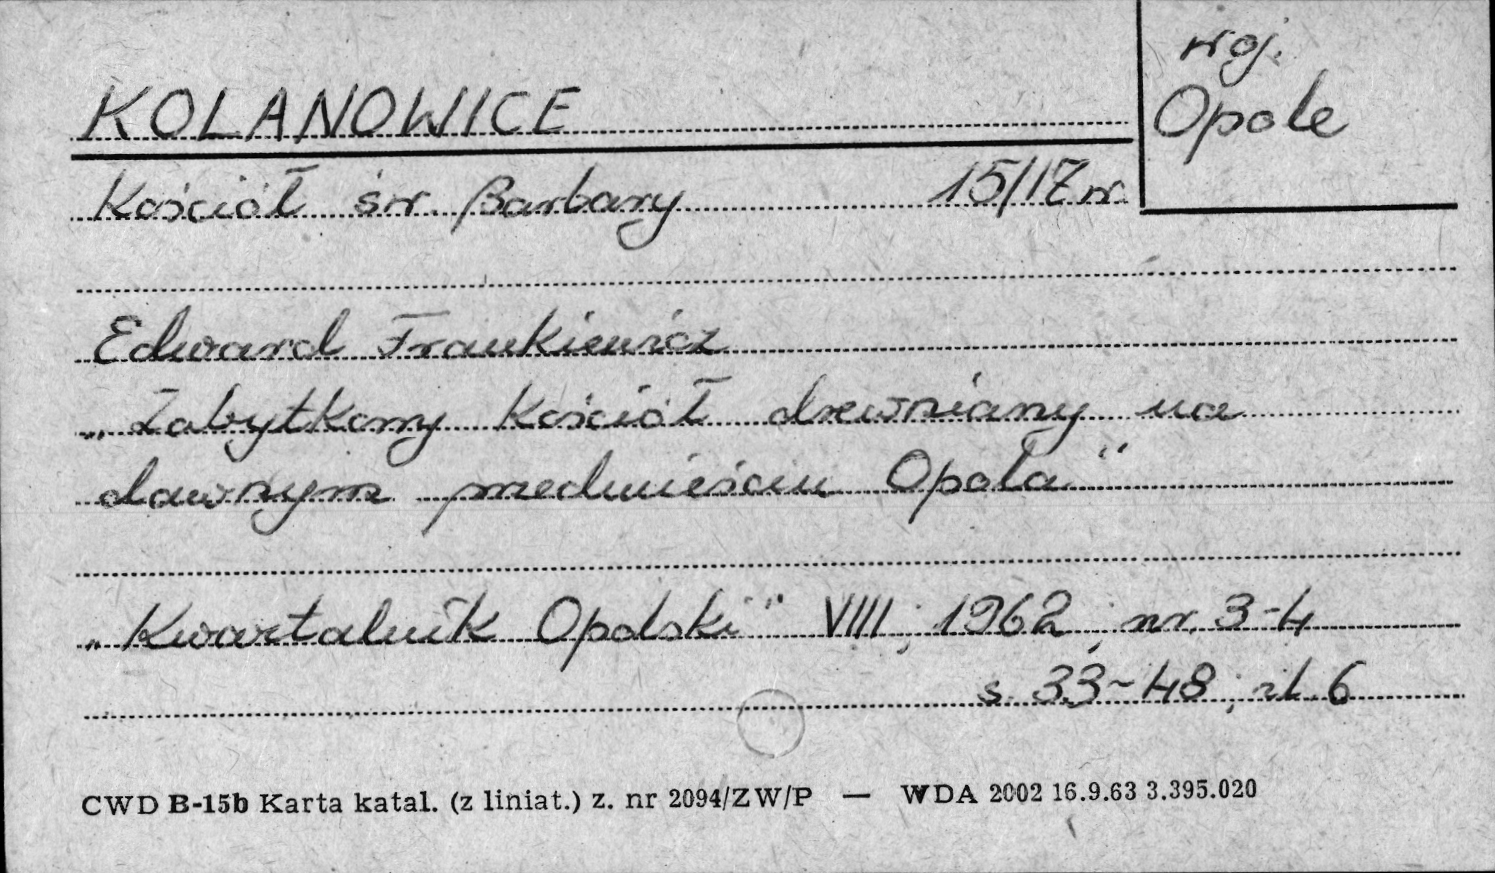 woj.
Opole
KOLANOWICE
Kościół św. Barbary 15/17 w.
Edward Frankiewicz
„Zabytkowy kościół drewniany na
dawnym przedmieściu Opola"
„Kwartalnik Opolski" VIII, 1962, nr. 3-4
s. 33-48, il. 6
CWD B-15b Karta katal. (z liniat.) z. nr 2094/ZW/P — WDA 2002 16.9.63 3.395.020